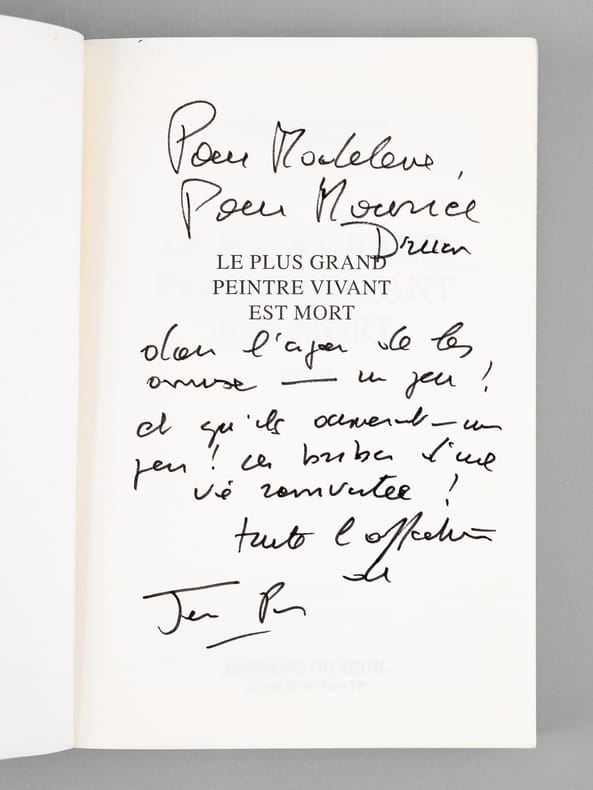 Pour Madeleine,
Pour Maurice
Druon
LE PLUS GRAND
PEINTRE VIVANT
EST MORT
dans l'espoir de les
amuser — un peu !
et qu'ils — un
peu ! ces bribes d'une
vie !
toute l'affection
de
Jean
ÉDITIONS DU SEUIL